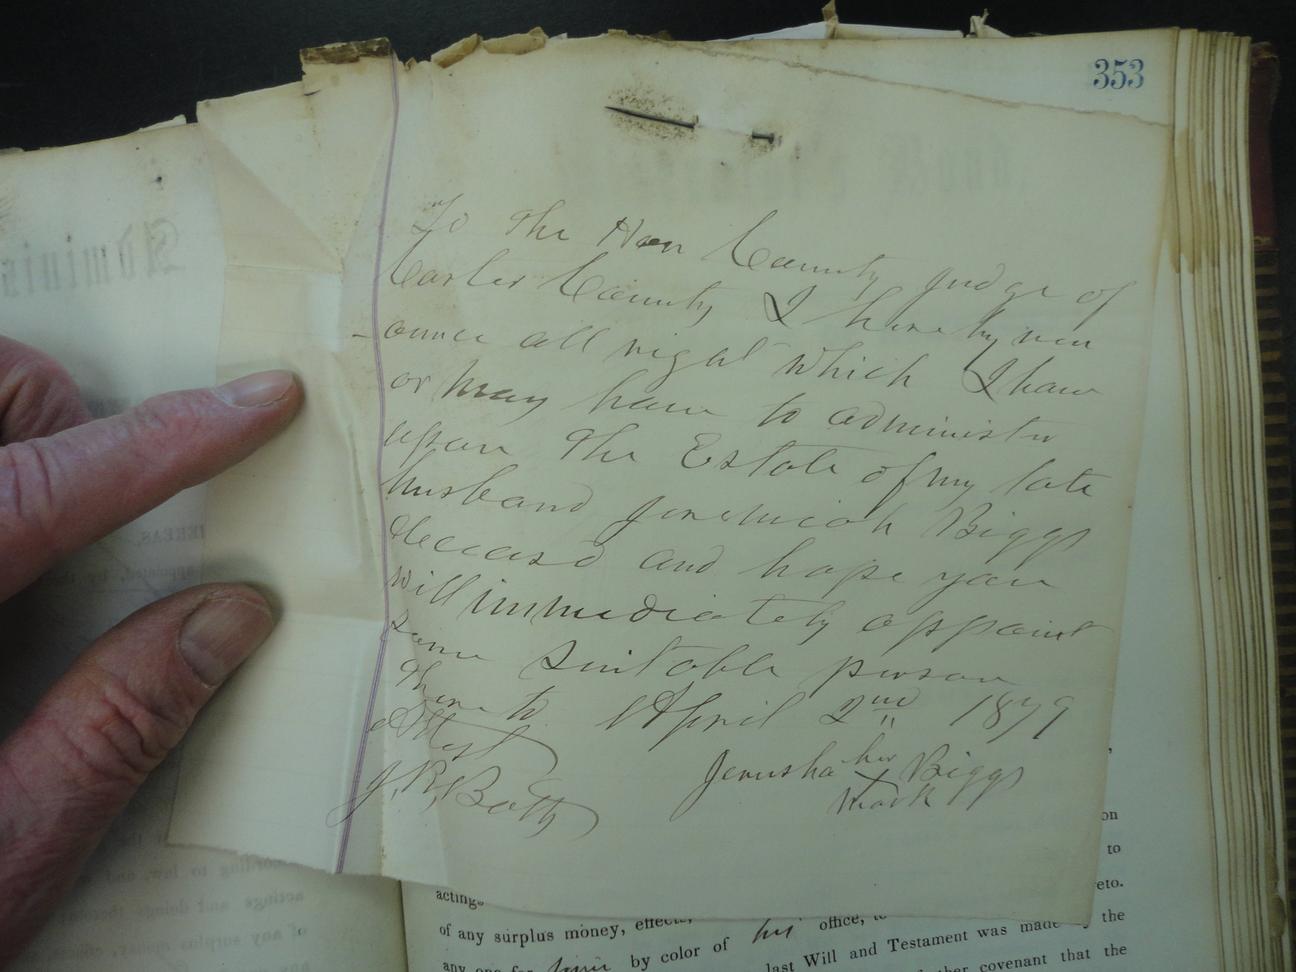 353
To the Hon County Judge of
Carter County I hereby ren
ounce all right which I have
or may have to administer
upon the Estate of my late
husband Jeremiah Biggs
deceasd and hope you
will immediately appoint
some suitable person
there to April 2nd 1879
Attest
J. R. Batty
Jerusha her Biggs
X
mark
Adminis
EREAS,
appointed, by th
on
to
eto.
actings
of any surplus money, effects, his office, to
last Will and Testament was made by the
any one for by color of
ther covenant that the
cording to law, and
actings and doings therein
of any surplus money, effec